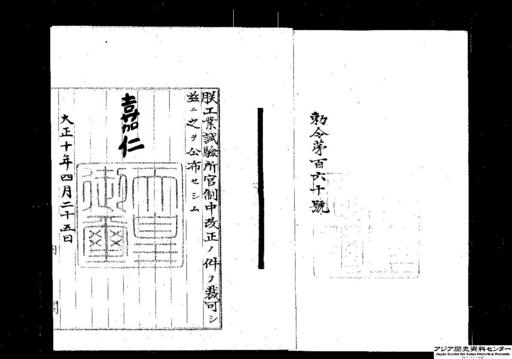 勅令第百六十號
朕工業試驗所官制中改正ノ件ヲ裁可シ
玆ニ之ヲ公布セシム
嘉仁
天皇御璽
大正十年四月二十五日
アジア歴史資料センター
Japan Center for Asian Historical Records